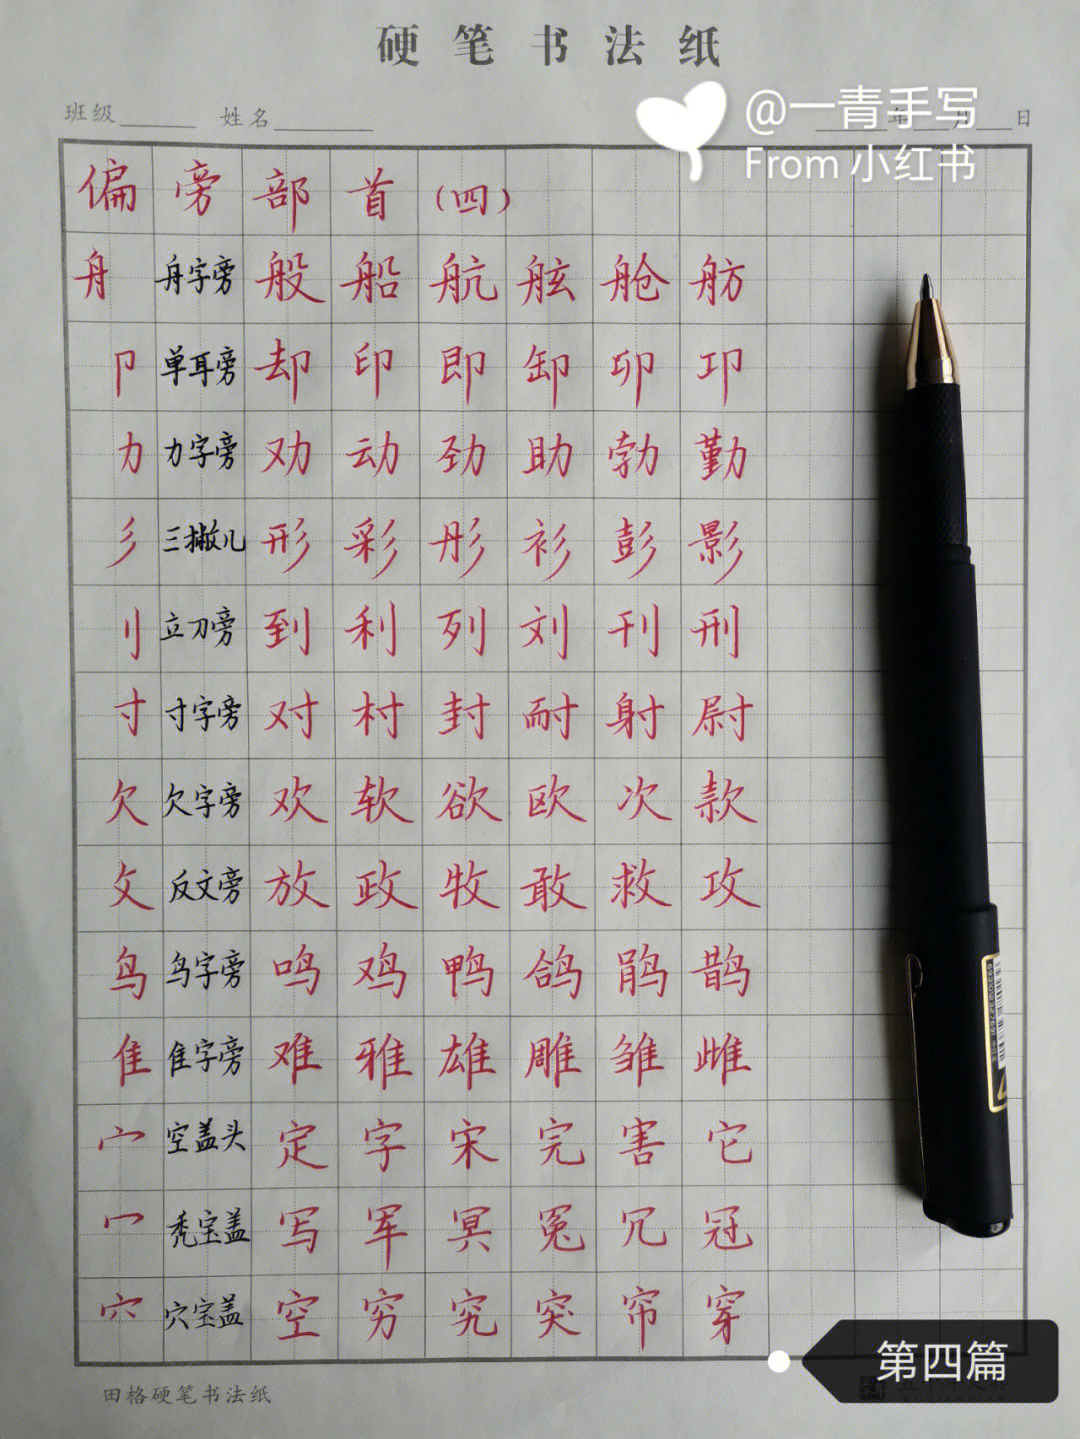 硬笔书法纸
班级 姓名 年 月 日
@一青手写
From 小红书
偏旁部首(四)
舟 舟字旁 般 船 航 舷 舱 舫
卩 单耳旁 却 印 即 卸 卯 卭
力 力字旁 劝 动 劲 助 勃 勤
彡 三撇儿 形 彩 彤 衫 彭 影
刂 立刀旁 到 利 列 刘 刊 刑
寸 寸字旁 对 村 封 耐 射 尉
欠 欠字旁 欢 软 欲 欧 次 款
攵 反文旁 放 政 牧 敢 救 攻
鸟 鸟字旁 鸣 鸡 鸭 鸽 鹃 鹊
隹 隹字旁 难 雅 雄 雕 雏 雌
宀 空盖头 定 字 宋 完 害 它
冖 秃宝盖 写 军 冥 冤 冗 冠
穴 穴宝盖 空 穷 究 突 帘 穿
第四篇
田格硬笔书法纸